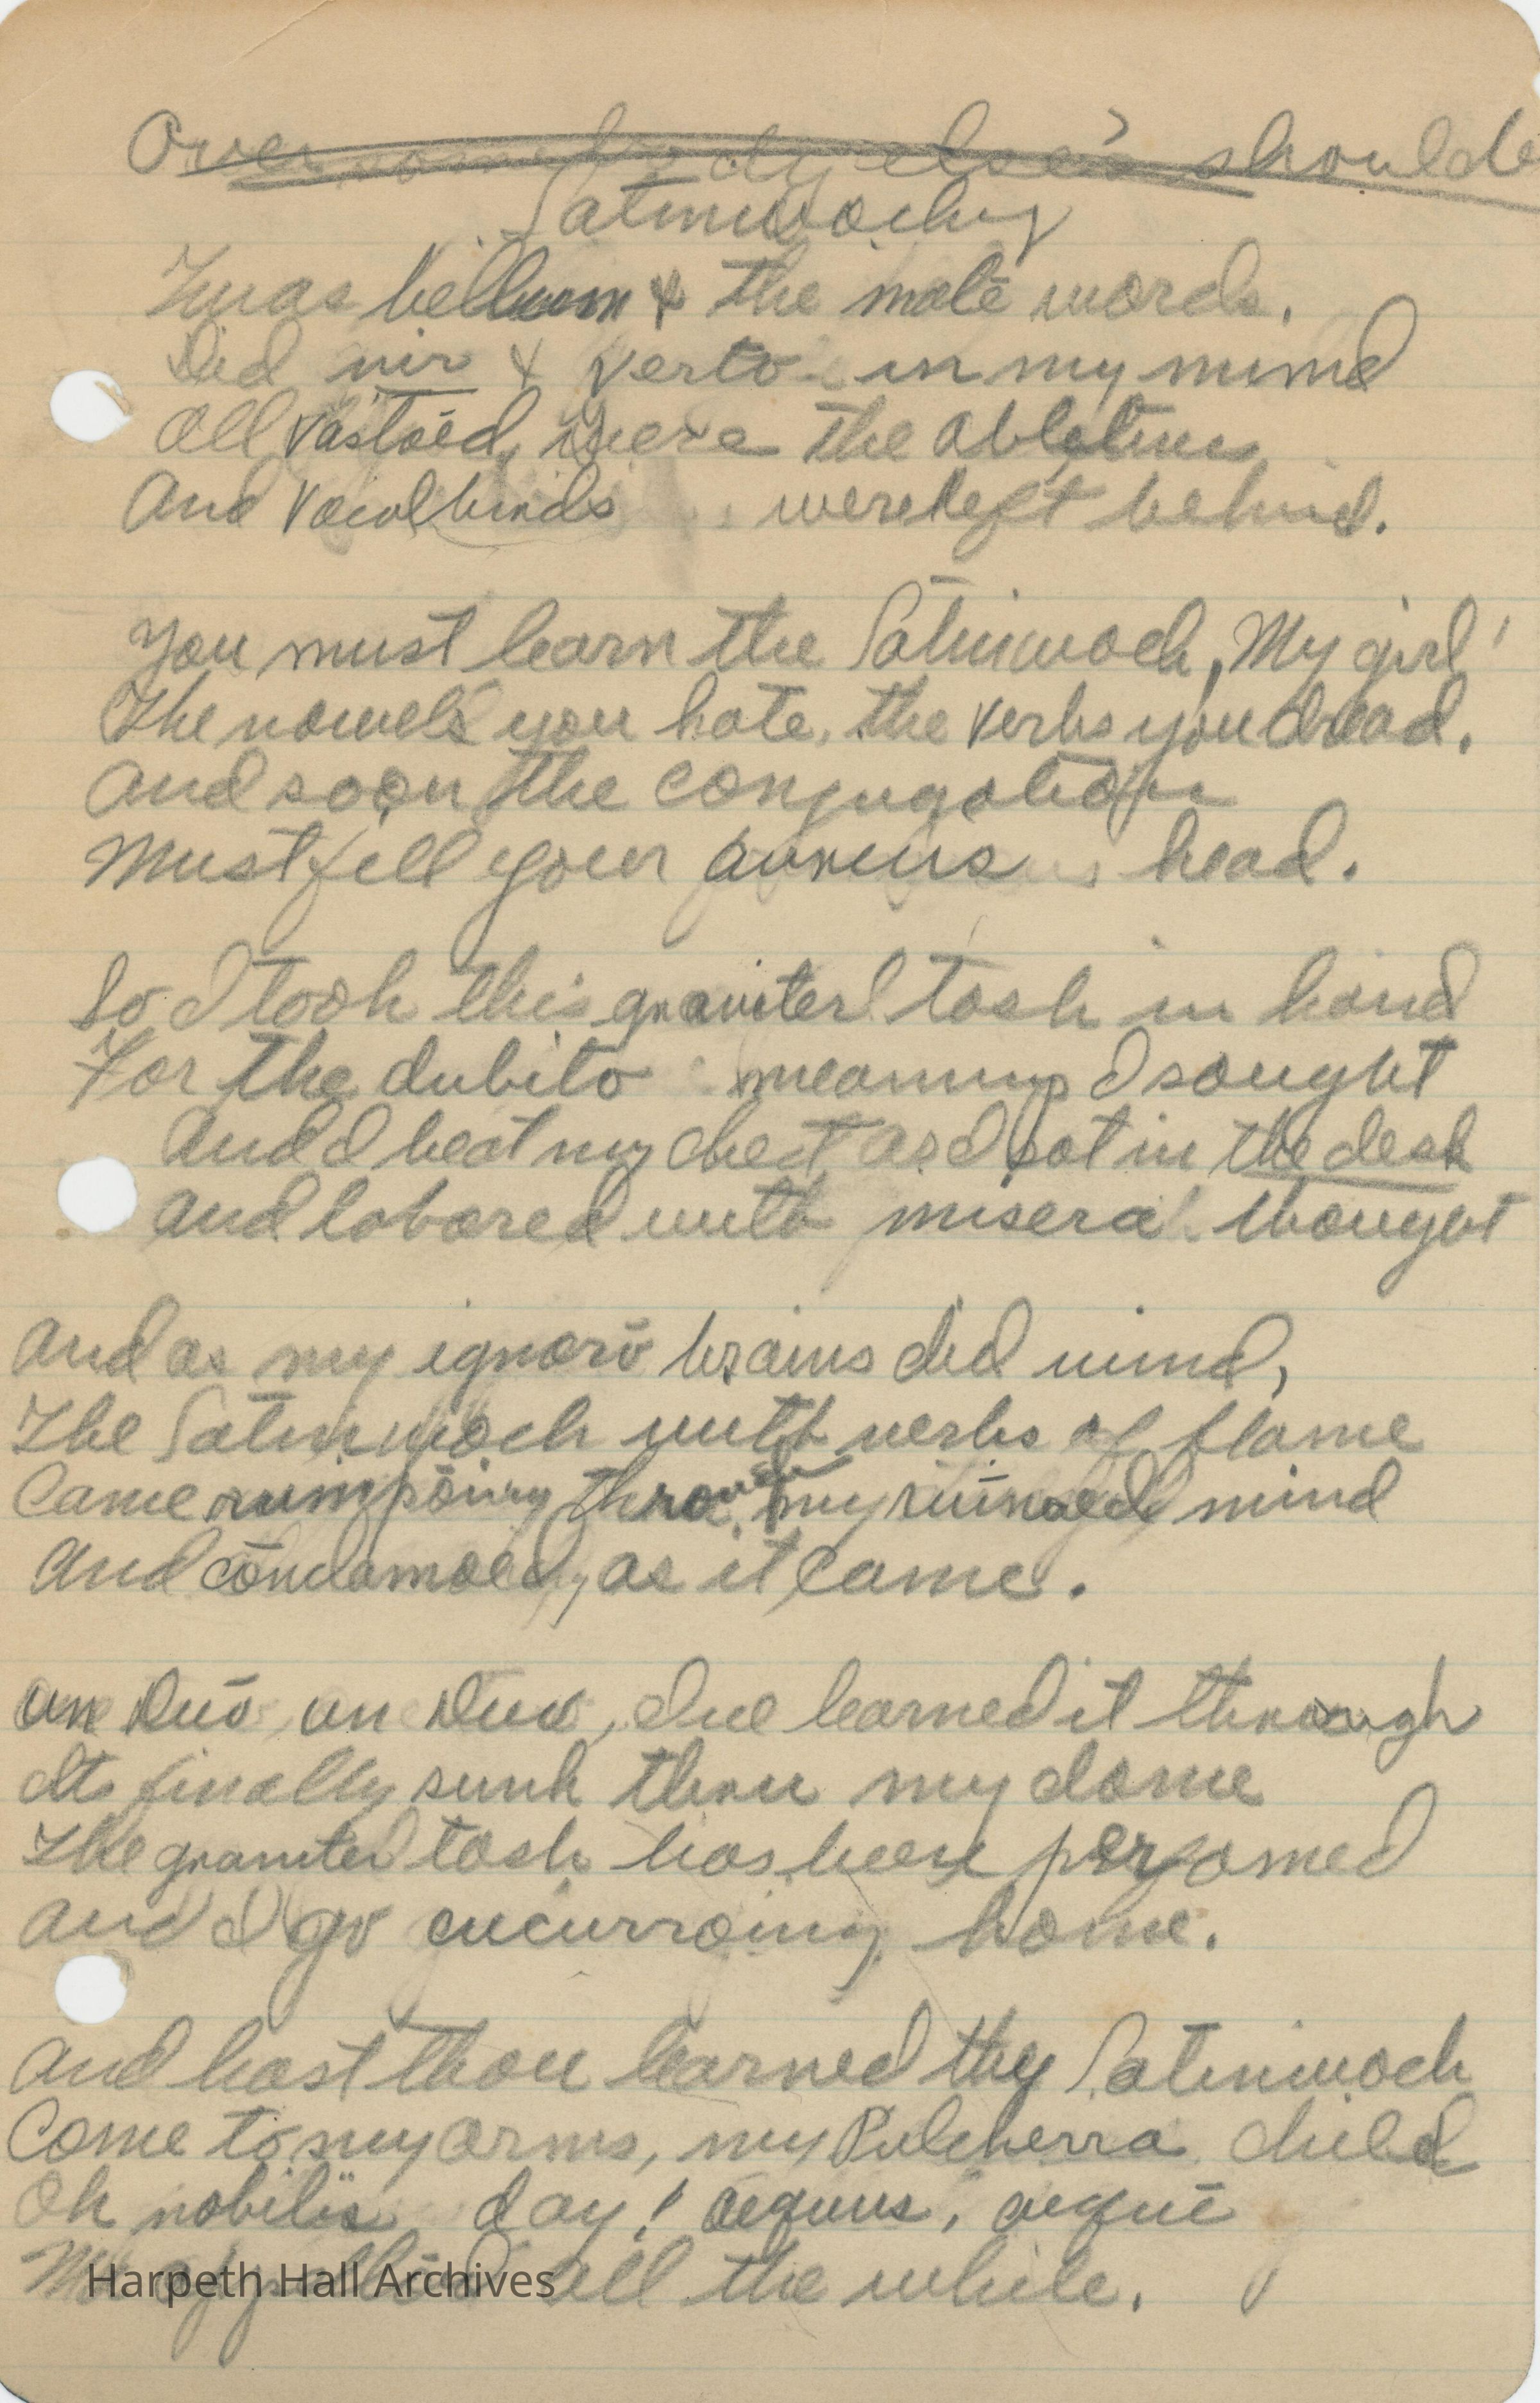 Over somebody else's shoulde
Latinwocky
Twas bellum & the malē words.
Did vir & verto in my mind
All vastōed, were the ablatives
And vocul hinds were left behind.
You must learn the Latinwock, My girl!
The vowels you hate, the verbs you dread.
And soon the conjugation
Must fill your head.
So I took this graviter task in hand
For the dubito meaning I sought
And I beat my chest as I sat in the desk
And labored with misera thought
And as my ignorō brains did wind,
The Latinwock with verbs of flame
Came rumpōing through my ruined mind
And condamoed, as it came.
Un Duō, un Duo, I've learned it through
Its finally sunk thru my dome
The graviter task has been
And I go cucurroing home.
And hast thou learned thy Latinwock
Come to my arms, my Pulcherra child
Oh nobilis day! aequus, aequē
all the while.
Harpeth Hall Archives